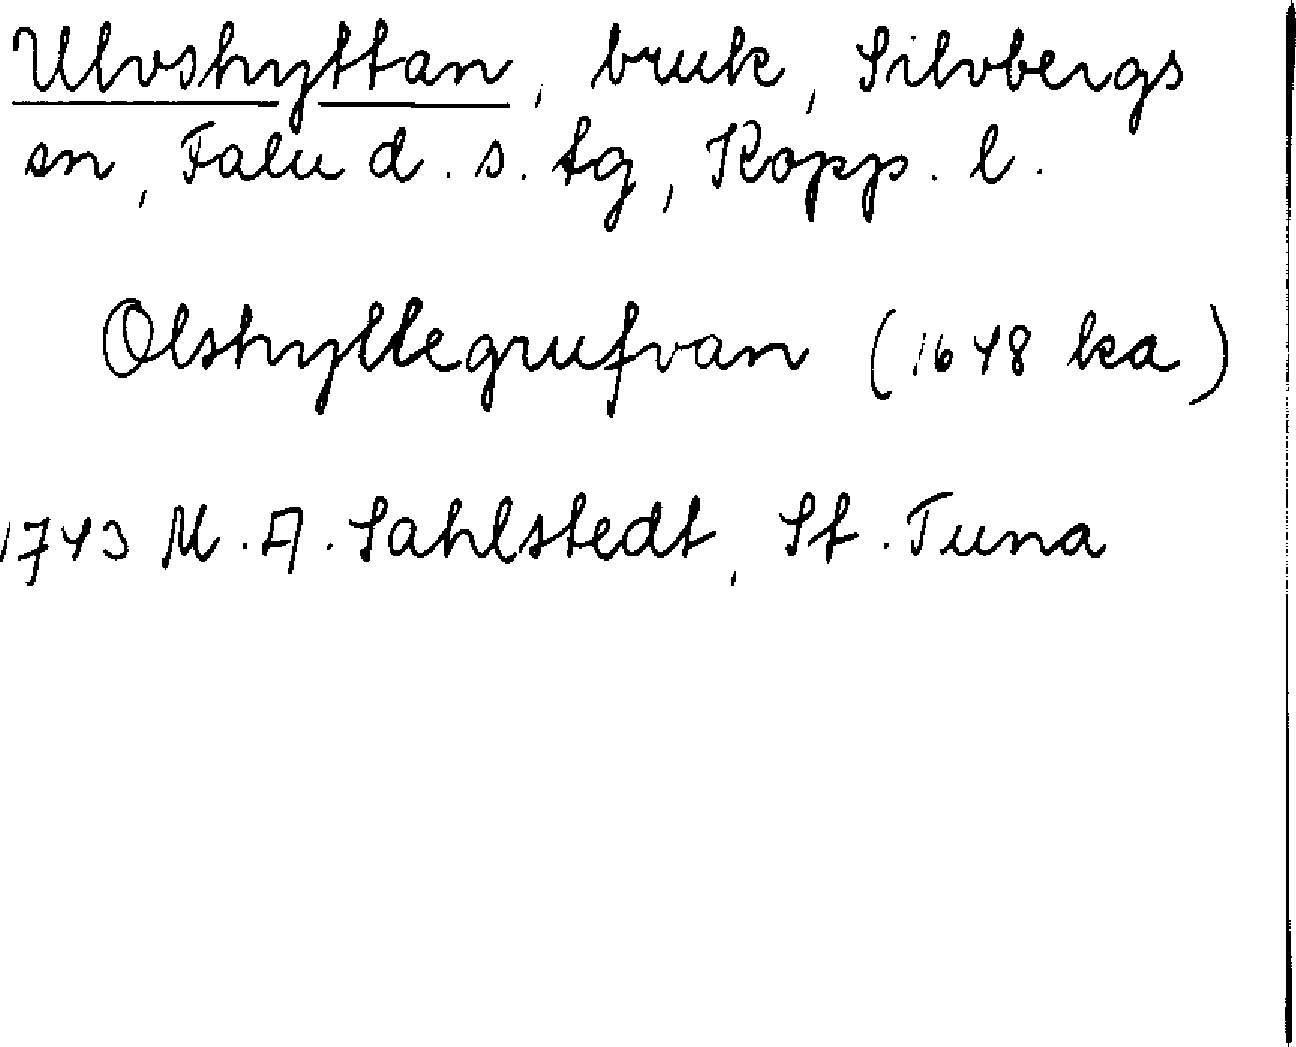 Ulvshyttan, bruk, Silvbergs
sn, Falu d. s. tg, Kopp. l.
Olshyttegrufvan (1648 ka)
1743 M. A. Sahlstedt, St. Tuna